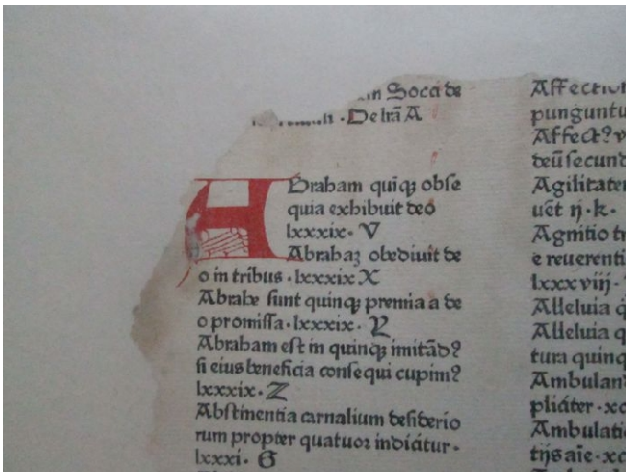 in Socci de
· De lr̄a A
Abraham quiqꝫ obse
quia exhibuit deo
lxxxix· V
Abrahaꝫ obediuit de
o in tribus · lxxxix X
Abrahe sunt quinqꝫ premia a de
o promissa · lxxxix · Y
Abraham est in quinqꝫ imitād?
si eius beneficia consequi cupim?
lxxxix · Z
Abstinentia carnalium desiderio
rum propter quatuor indicitur·
lxxxi· G
Affectiu
punguntu
Affect? v
deū secund
Agilitatem
uet ij · k·
Agnitio tr
e reuerenti
lxxxviij·
Alleluia q
Alleluia q
tura quinq
Ambulan
pliciter · xc
Ambulati
tijs aīe · xc